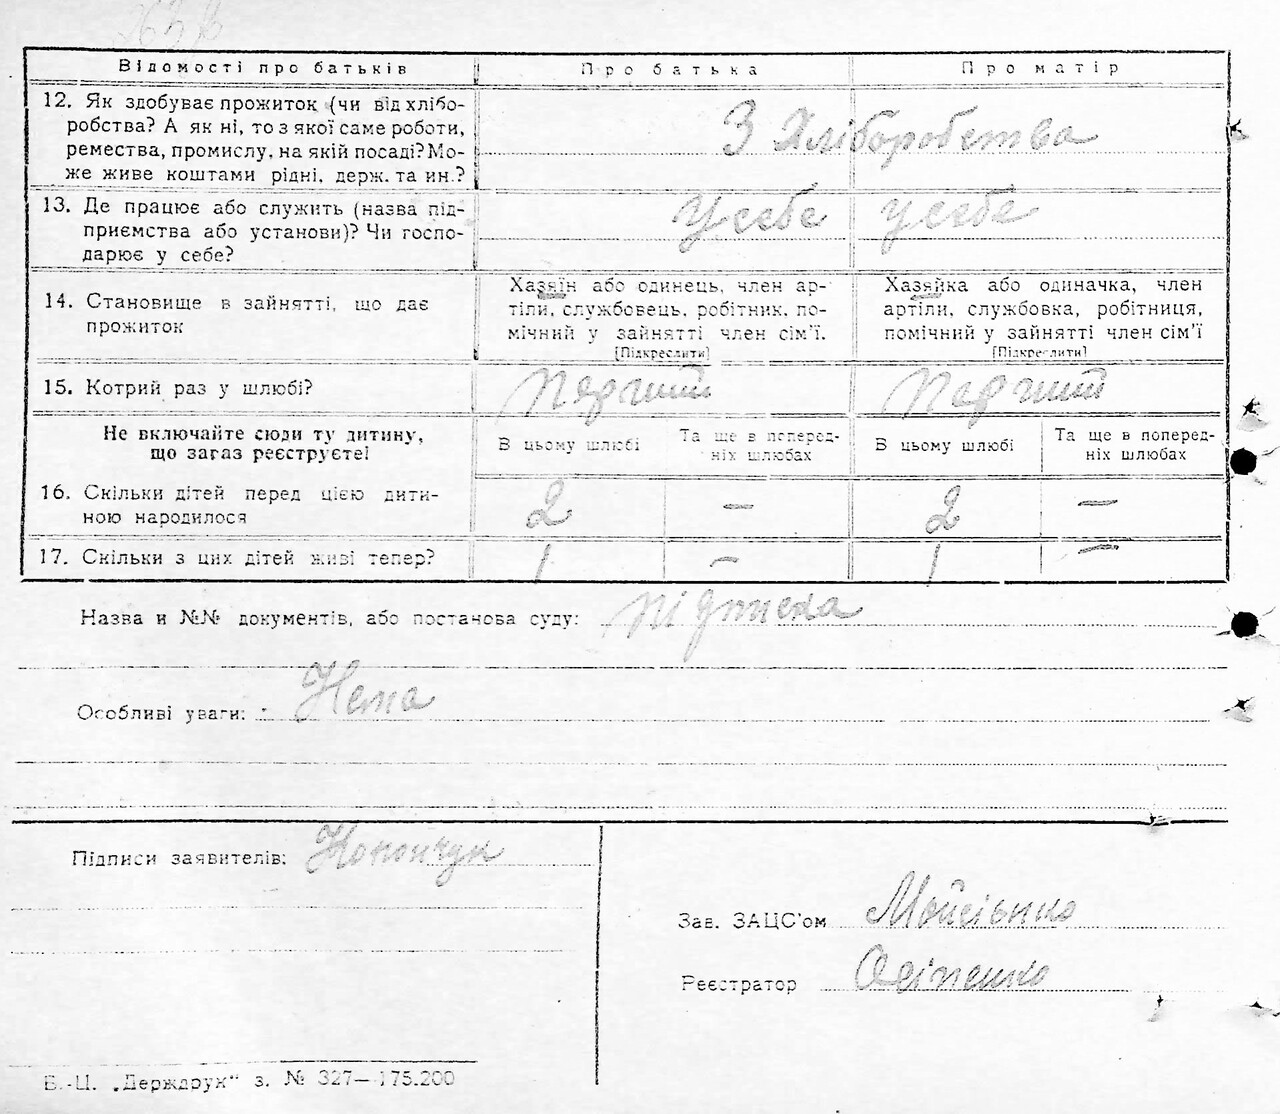 263 в
Відомості про батьків Про батька Про матір
12. Як здобуває прожиток (чи від хлібо-
робства? А як ні, то з якої саме роботи,
ремества, промислу, на якій посаді? Мо-
же живе коштами рідні, держ. та ин.?
З Хліборобства
13. Де працює або служить (назва під-
приємства або установи)? Чи госпо-
дарює у себе?
У себе у себе
14. Становище в зайнятті, що дає
прожиток
Хазяїн або одинець, член ар-
тіли, службовець, робітник, по-
мічний у зайнятті член сім'ї.
[Підкреслити]
Хазяйка або одиначка, член
артіли, службовка, робітниця,
помічний у зайнятті член сім'ї
[Підкреслити]
15. Котрий раз у шлюбі? Перший Перший
Не включайте сюди ту дитину,
що загаз реєструєте!
В цьому шлюбі
Та ще в поперед-
ніх шлюбах
В цьому шлюбі
Та ще в поперед-
ніх шлюбах
16. Скільки дітей перед цією дити-
ною народилося
2 — 2 —
17. Скільки з цих дітей живі тепер? 1 — 1 —
Назва и №№ документів, або постанова суду: підписка
Особливі уваги: Нема
Підписи заявителів: Конончук
Зав. ЗАЦС'ом Мойсієнко
Реєстратор Осіпенко
Б.-Ц. „Держдрук" з. № 327—175.200